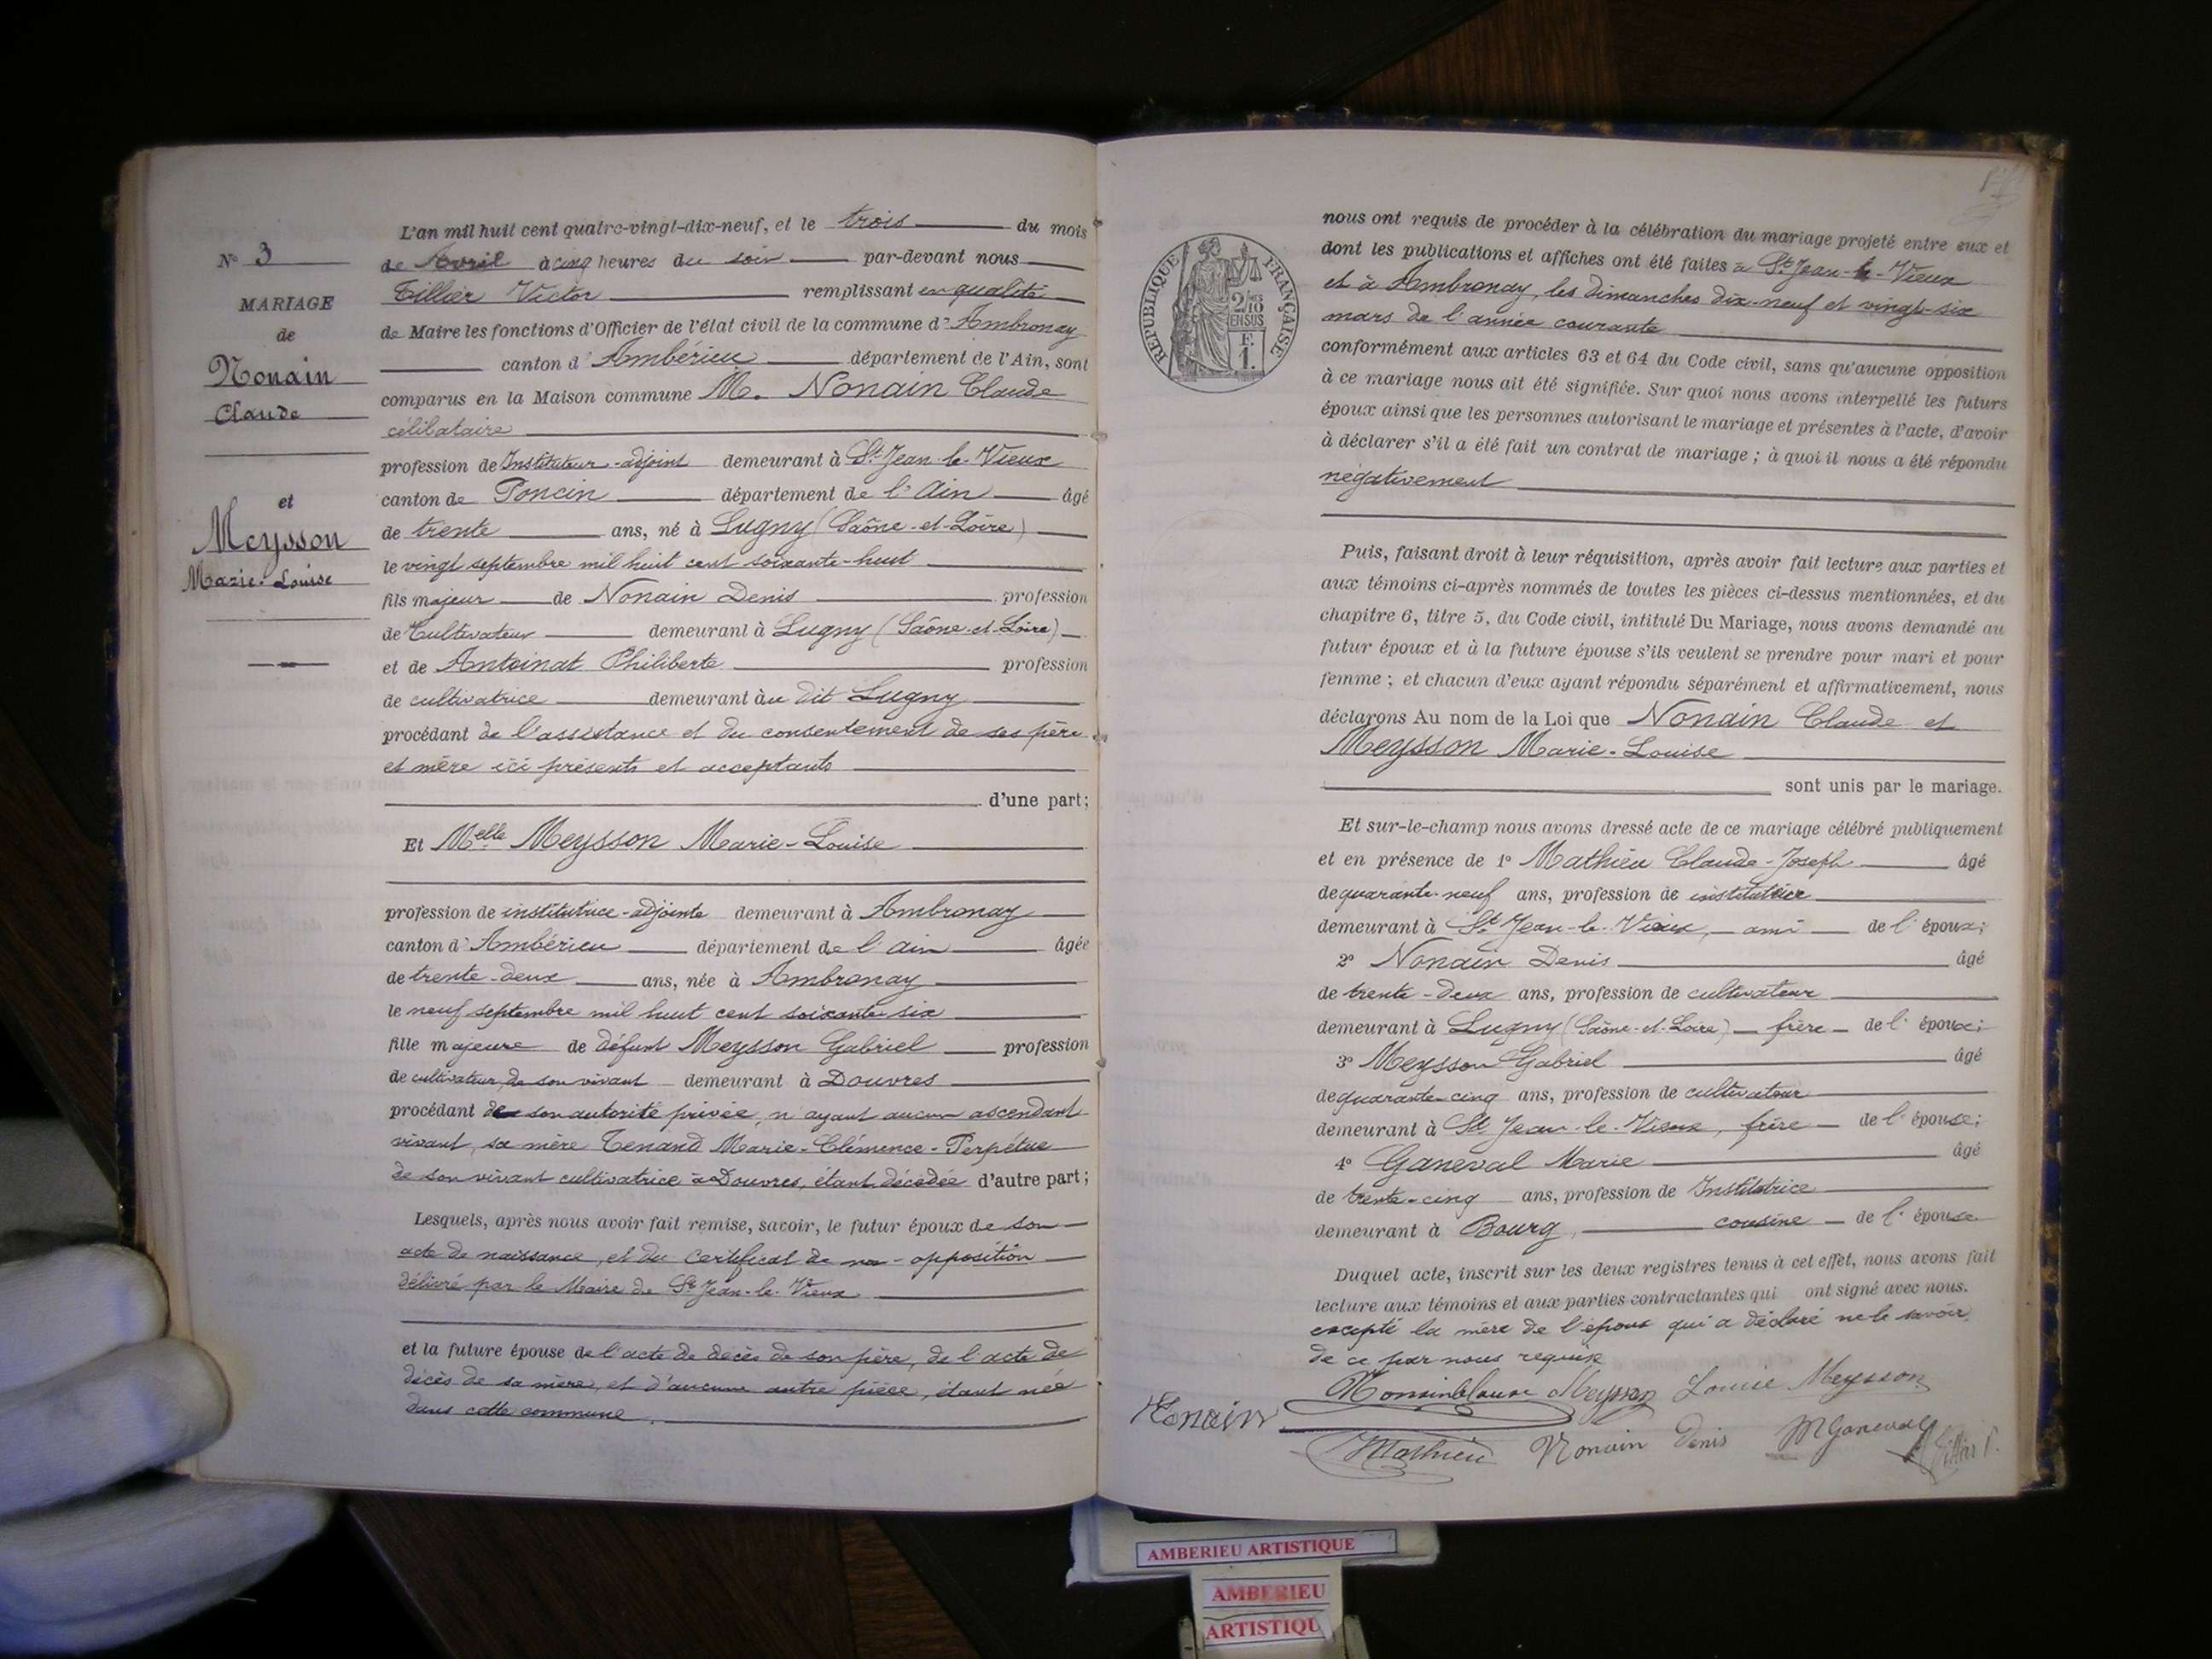 N° 3
MARIAGE
de
Nonain
Claude
et
Meysson
Marie-Louise
L'an mil huit cent quatre-vingt-dix-neuf, et le trois du mois
de Avril à cinq heures du soir par-devant nous
Tillier Victor remplissant en qualité
de Maire les fonctions d'Officier de l'état civil de la commune d'Ambronay
canton d'Ambérieu département de l'Ain, sont
comparus en la Maison commune M. Nonain Claude
célibataire
profession de Instituteur-adjoint demeurant à St Jean-le-Vieux
canton de Poncin département de l'Ain âgé
de trente ans, né à Lugny (Saône-et-Loire)
le vingt septembre mil huit cent soixante-huit
fils majeur de Nonain Denis profession
de Cultivateur demeurant à Lugny (Saône-et-Loire)
et de Antoinat Philiberte profession
de cultivatrice demeurant au dit Lugny
procédant de l'assistance et du consentement de ses père
et mère ici présents et acceptants
d'une part;
Et Melle Meysson Marie-Louise
profession de institutrice-adjointe demeurant à Ambronay
canton d'Ambérieu département de l'ain âgée
de trente-deux ans, née à Ambronay
le neuf septembre mil huit cent soixante six
fille majeure de défunt Meysson Gabriel profession
de cultivateur, de son vivant demeurant à Douvres
procédant de son autorité privée, n'ayant aucun ascendant
vivant, sa mère Tenand Marie-Clémence-Perpétue
de son vivant cultivatrice à Douvres, étant décédée d'autre part;
Lesquels, après nous avoir fait remise, savoir, le futur époux de son
acte de naissance, et du certificat de non-opposition
délivré par le Maire de St Jean-le-Vieux
et la future épouse de l'acte de décès de son père, de l'acte de
décès de sa mère, et d'aucune autre pièce, étant née
dans cette commune.
REPUBLIQUE FRANÇAISE
2/10
EN SUS
F.
1.
nous ont requis de procéder à la célébration du mariage projeté entre eux et
dont les publications et affiches ont été faites à St Jean-le-Vieux
et à Ambronay, les dimanches dix-neuf et vingt-six
mars de l'année courante
conformément aux articles 63 et 64 du Code civil, sans qu'aucune opposition
à ce mariage nous ait été signifiée. Sur quoi nous avons interpellé les futurs
époux ainsi que les personnes autorisant le mariage et présentes à l'acte, d'avoir
à déclarer s'il a été fait un contrat de mariage ; à quoi il nous a été répondu
négativement
Puis, faisant droit à leur réquisition, après avoir fait lecture aux parties et
aux témoins ci-après nommés de toutes les pièces ci-dessus mentionnées, et du
chapitre 6, titre 5, du Code civil, intitulé Du Mariage, nous avons demandé au
futur époux et à la future épouse s'ils veulent se prendre pour mari et pour
femme ; et chacun d'eux ayant répondu séparément et affirmativement, nous
déclarons Au nom de la Loi que Nonain Claude et
Meysson Marie-Louise
sont unis par le mariage.
Et sur-le-champ nous avons dressé acte de ce mariage célébré publiquement
et en présence de 1° Mathieu Claude-Joseph âgé
de quarante-neuf ans, profession de instituteur
demeurant à St Jean-le-Vieux, ami de l'époux;
2° Nonain Denis âgé
de trente-deux ans, profession de cultivateur
demeurant à Lugny (Saône-et-Loire) frère de l'époux;
3° Meysson Gabriel âgé
de quarante-cinq ans, profession de cultivateur
demeurant à St Jean-le-Vieux, frère de l'épouse;
4° Ganeval Marie âgé
de trente-cinq ans, profession de Institutrice
demeurant à Bourg, cousine de l'épouse
Duquel acte, inscrit sur les deux registres tenus à cet effet, nous avons fait
lecture aux témoins et aux parties contractantes qui ont signé avec nous.
excepté la mère de l'époux qui a déclaré ne le savoir
de ce par nous requise
Nonain Claude Meysson Louise Meysson
Nonain
Mathieu Nonain Denis M Ganeval
AMBERIEU ARTISTIQUE
AMBERIEU
ARTISTIQU